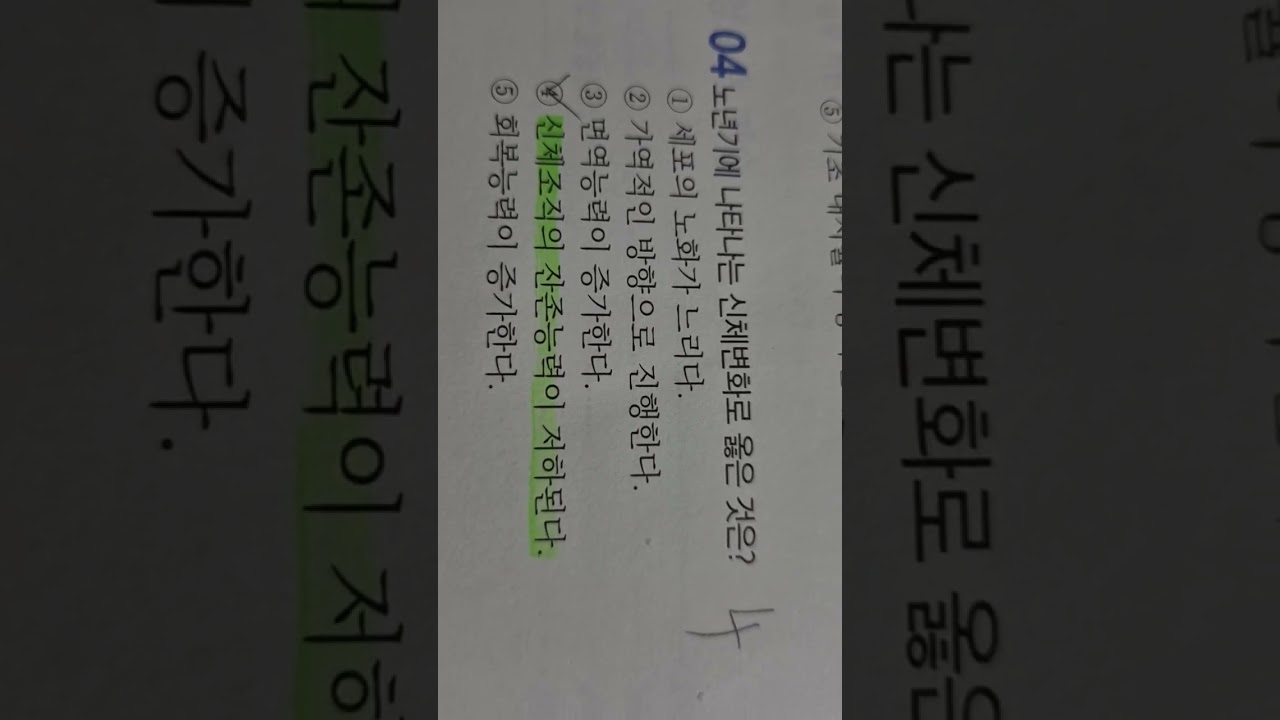 04 노년기에 나타나는 신체변화로 옳은 것은? 4
① 세포의 노화가 느리다.
② 가역적인 방향으로 진행한다.
③ 면역능력이 증가한다.
④ 신체조직의 잔존능력이 저하된다.
⑤ 회복능력이 증가한다.